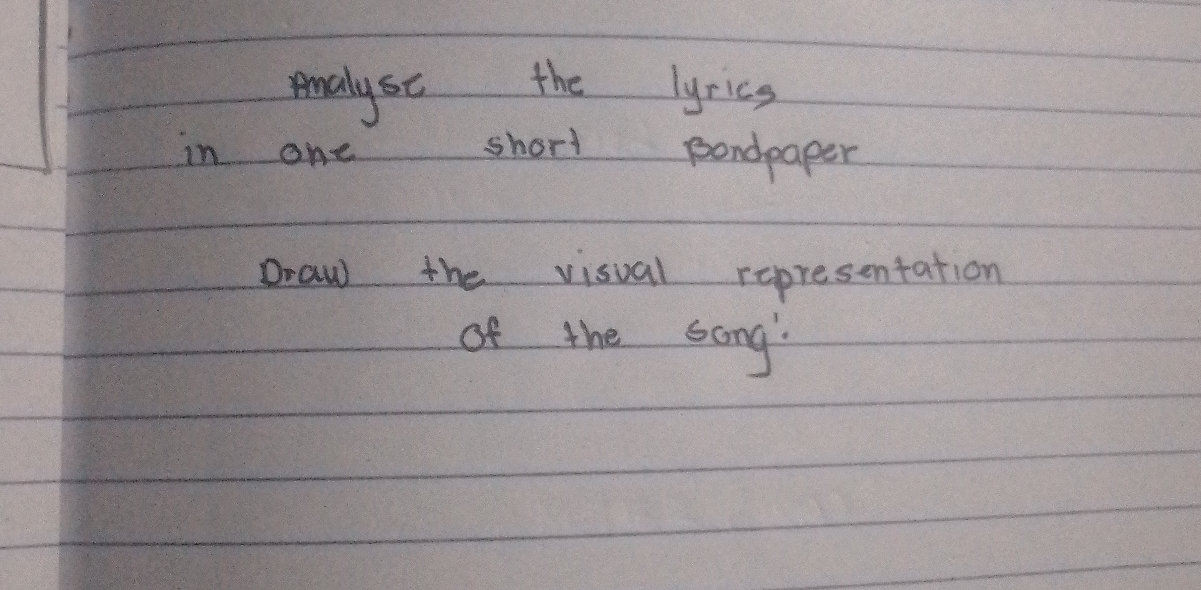 Analyse the lyrics
in one short Bondpaper
Draw the visual representation
of the song'.